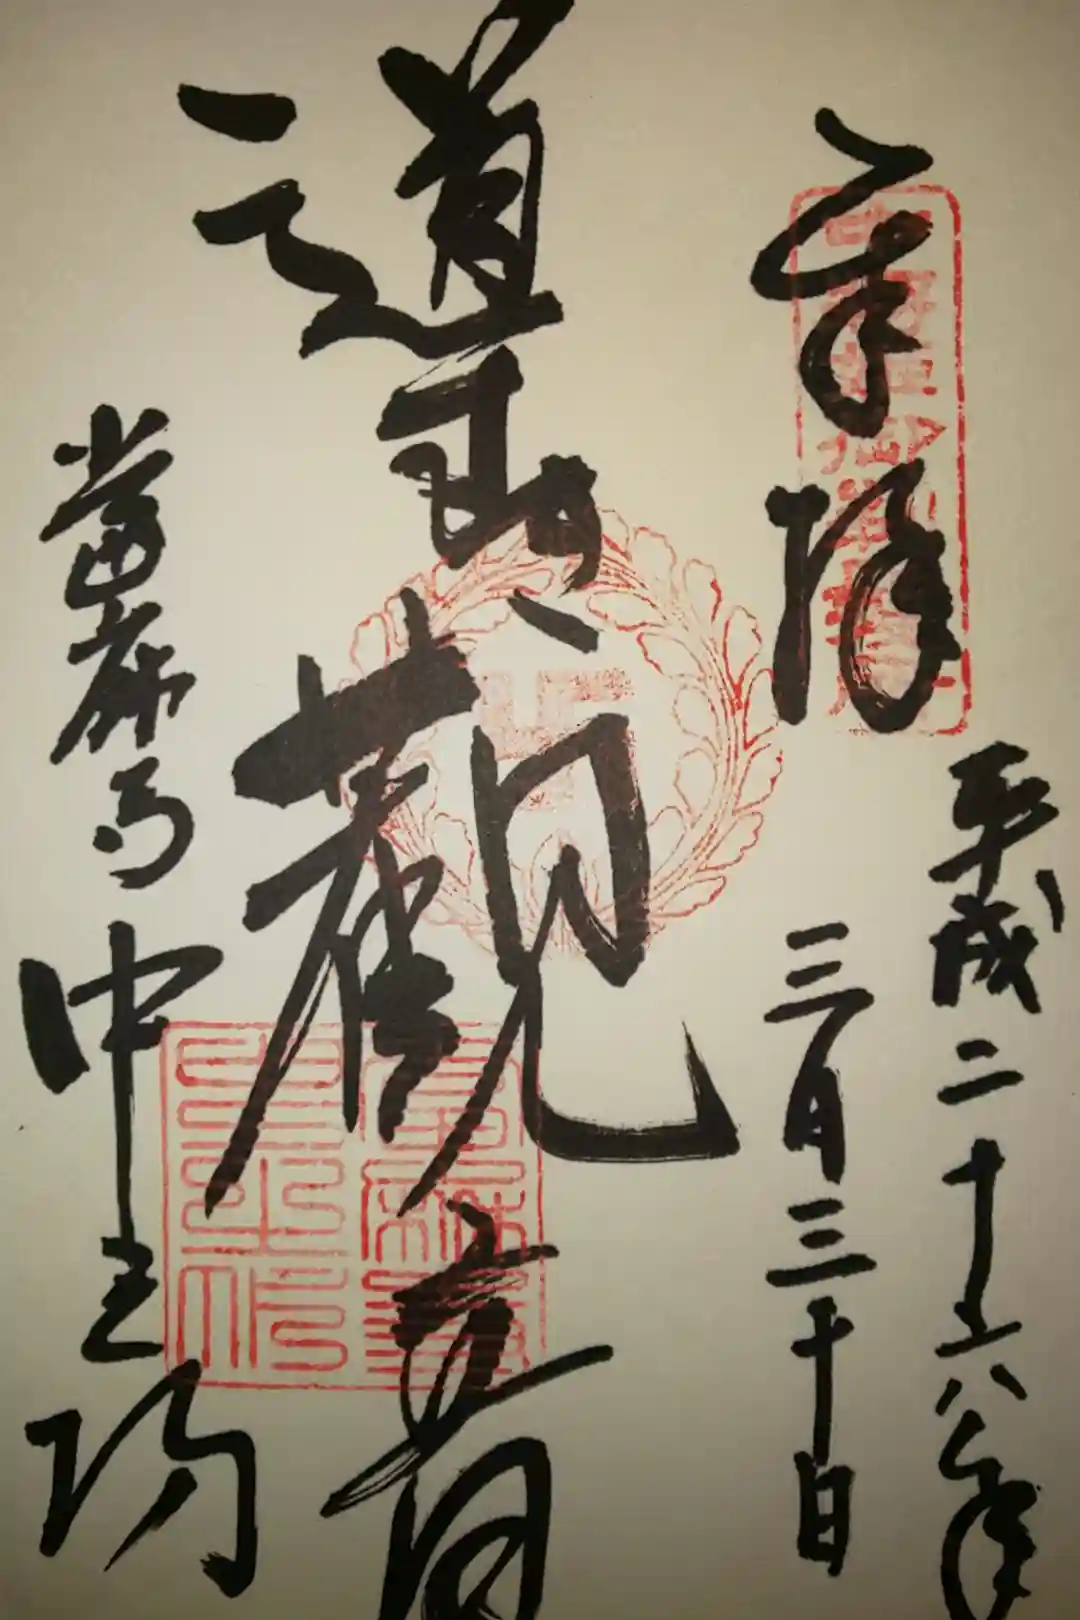 奉拝
平成二十六年
三月三十日
導觀音
當麻寺中之坊